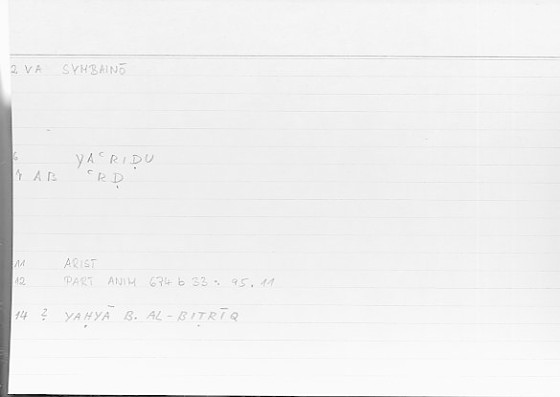 2 VA SYMBAINŌ
6 YAʿRIḌU
7 AB ʿRḌ
11 ARIST
12 PART ANIM 674 b 33 : 95.11
14 ? YAḤYĀ B. AL-BIṬRĪQ